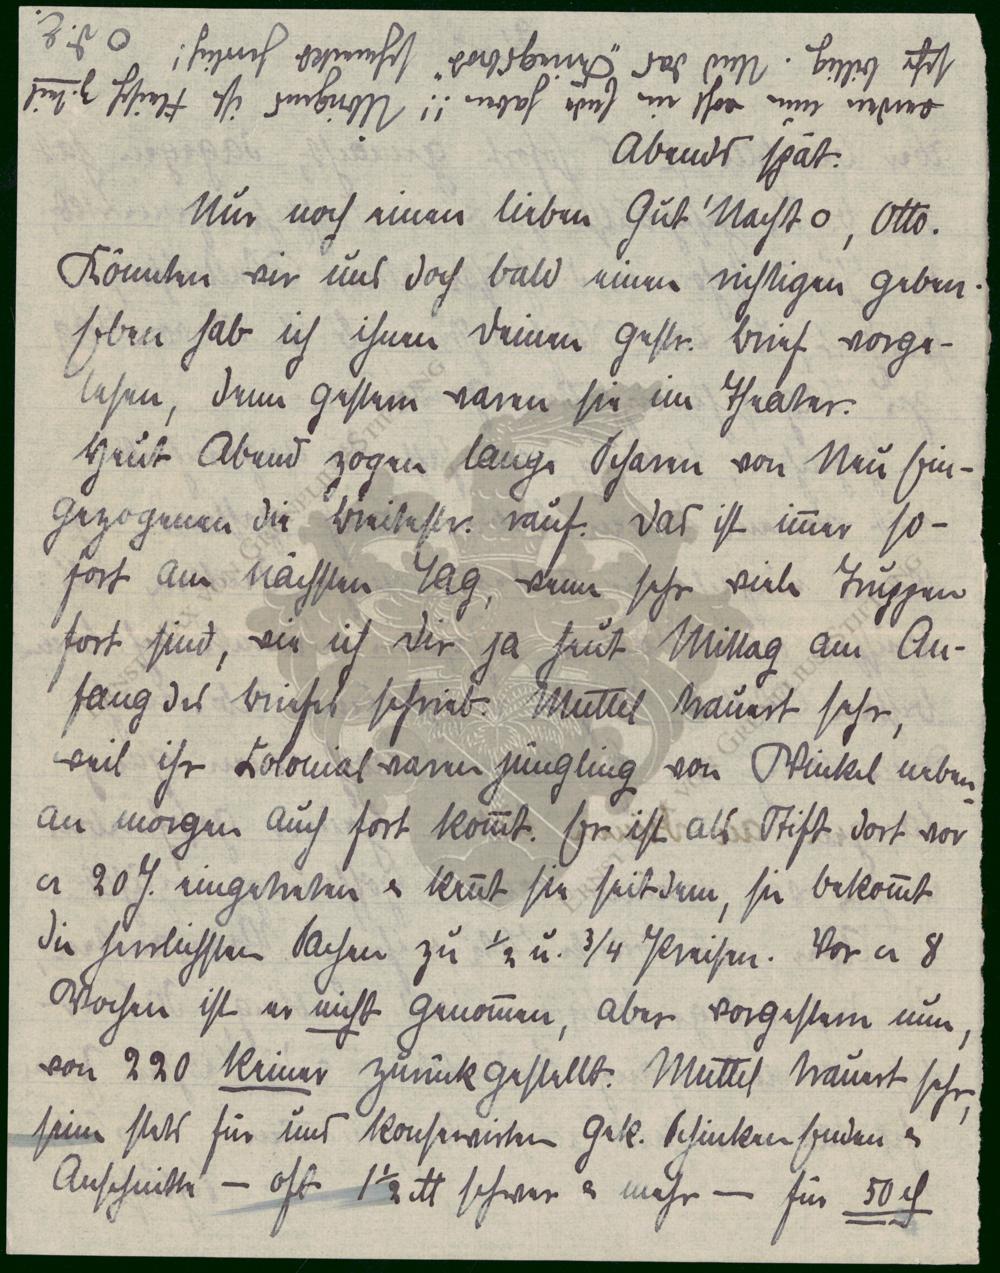 Abends spät.
Nur noch einen lieben Gut'Nacht o, Otto.
Könnten wir uns doch bald einen richtigen geben.
Eben hab ich ihnen Deinen gestr. Brief vorge-
lesen, denn gestern waren sie im Theater.
Heut Abend zogen lange Scharen von Neu Ein-
gezogenen die Breitestr. rauf. Das ist im̅er so-
fort am nächsten Tag, wenn sehr viele Truppen
fort sind, wie ich Dir ja heut Mittag am An-
fang des Briefes schrieb. Muttel trauert sehr,
weil ihr Kolonialwarenjüngling von Winkel neben-
an morgen auch fort kom̅t. Er ist als Stift dort vor
ca 20 J. eingetreten & ken̅t sie seitdem, sie bekom̅t
die herrlichsten Sachen zu ½ u. 3/4 Preisen. Vor ca 8
Wochen ist er nicht genom̅en, aber vorgestern nun,
von 220 keiner zurückgestellt. Muttel trauert sehr,
seine stets für uns konservirten gek. Schinkenenden &
Anschnitte — oft 1½ ℔ schwer & mehr — für 50 ₰
werden nun wohl ein Ende haben!! Übrigens ist Fleisch z. Zeit
sehr billig. Und das "Kriegsbrod" schmeckt herrlich!